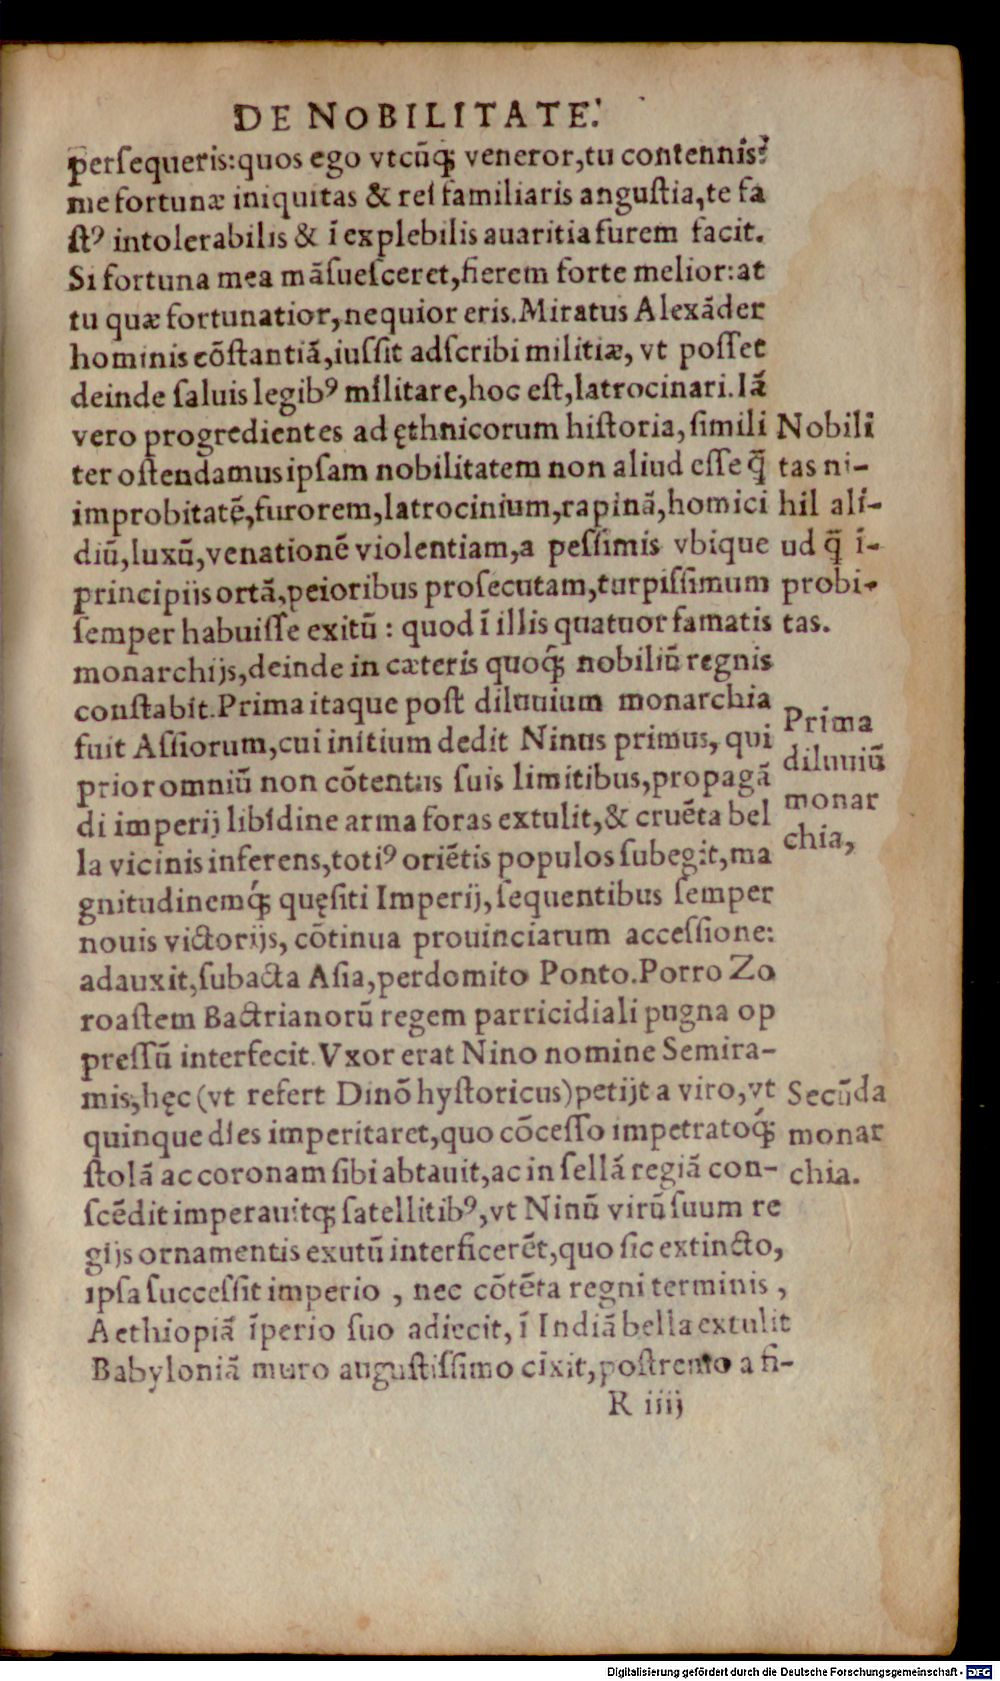 DE NOBILITATE.
persequeris:quos ego vtcũq́ꝫ veneror,tu contennis?
me fortunæ iniquitas & rei familiaris angustia,te fa
stꝰ intolerabilis & ĩ explebilis auaritia furem facit.
Si fortuna mea mãsuesceret,fierem forte melior:at
tu quæ fortunatior, nequior eris. Miratus Alexãder
hominis cõstantiã,iussit adscribi militiæ, vt posset
deinde saluis legibꝰ militare,hoc est,latrocinari. Iã
vero progredientes ad ęthnicorum historia, simili
ter ostendamus ipsam nobilitatem non aliud esse q̃
improbitatẽ,furorem,latrocinium,rapinã,homici
diũ,luxũ,venationẽ violentiam,a pessimis vbique
principiis ortã,peioribus prosecutam,turpissimum
semper habuisse exitũ : quod ĩ illis quatuor famatis
monarchijs,deinde in cæteris quoq́ꝫ nobiliũ regnis
constabit.Prima itaque post diluuium monarchia
fuit Assiorum,cui initium dedit Ninus primus, qui
prior omniũ non cõtentus suis limitibus,propagã
di imperij libidine arma foras extulit,& cruẽta bel
la vicinis inferens,totiꝰ oriẽtis populos subegit,ma
gnitudinemq́ꝫ quęsiti Imperij, sequentibus semper
nouis victorijs, cõtinua prouinciarum accessione:
adauxit,subacta Asia,perdomito Ponto.Porro Zo
roastem Bactrianorũ regem parricidiali pugna op
pressũ interfecit. Vxor erat Nino nomine Semira-
mis,hęc (vt refert Dinõ hystoricus) petijt a viro, vt
quinque dies imperitaret,quo cõcesso impetratoq́ꝫ
stolã ac coronam sibi abtauit,ac in sellã regiã con-
scẽdit imperauitqꝫ satellitibꝰ,vt Ninũ virũ suum re
gijs ornamentis exutũ interficerẽt,quo sic extincto,
ipsa successit imperio , nec cõtẽta regni terminis ,
Aethiopiã ĩperio suo adiecit, ĩ Indiã bella extulit
Babyloniã muro augustissimo cĩxit,postremo a fi-
R iiij
Nobili
tas ni-
hil ali-
ud q̃ ĩ-
probi-
tas.
Prima
diluuiũ
monar
chia,
Secũda
monar
chia.
Digitalisierung gefördert durch die Deutsche Forschungsgemeinschaft - DFG